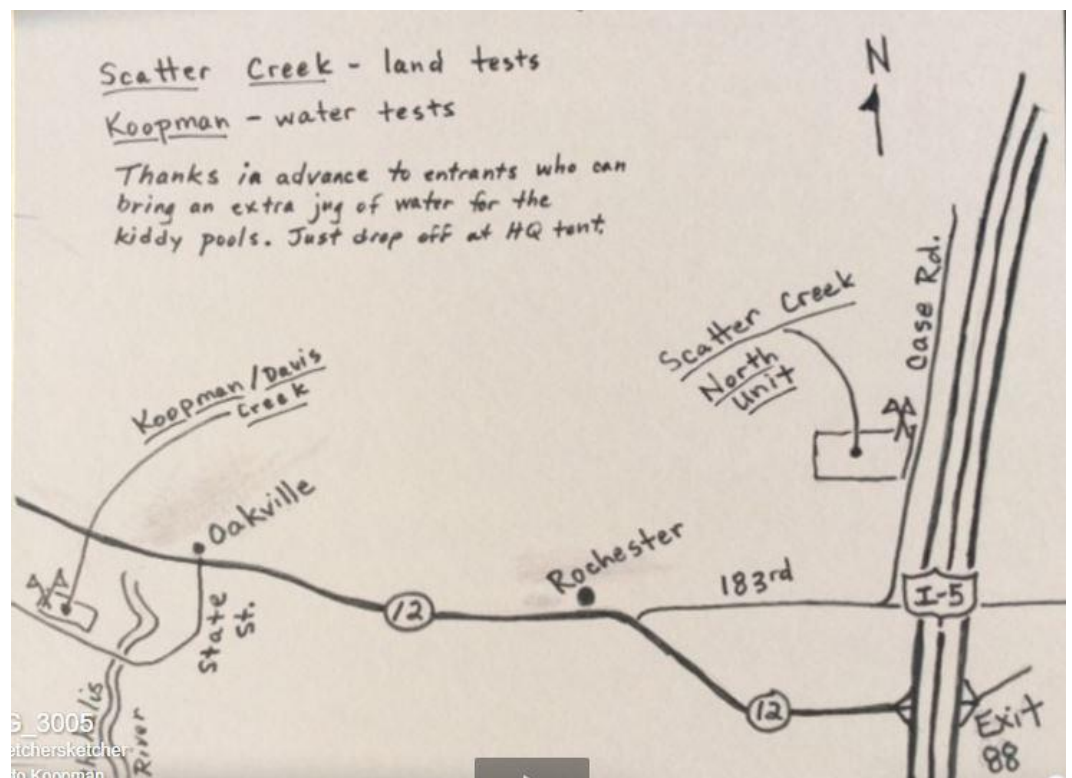 Scatter Creek - land tests
Koopman - water tests
Thanks in advance to entrants who can
bring an extra jug of water for the
kiddy pools. Just drop off at HQ tent.
N
Case Rd.
Scatter Creek
North
Unit
Koopman/Davis
Creek
Oakville
Rochester
183rd
I-5
12
State
St.
12
Exit
88
River
G_3005
etchersketcher
to Koopman